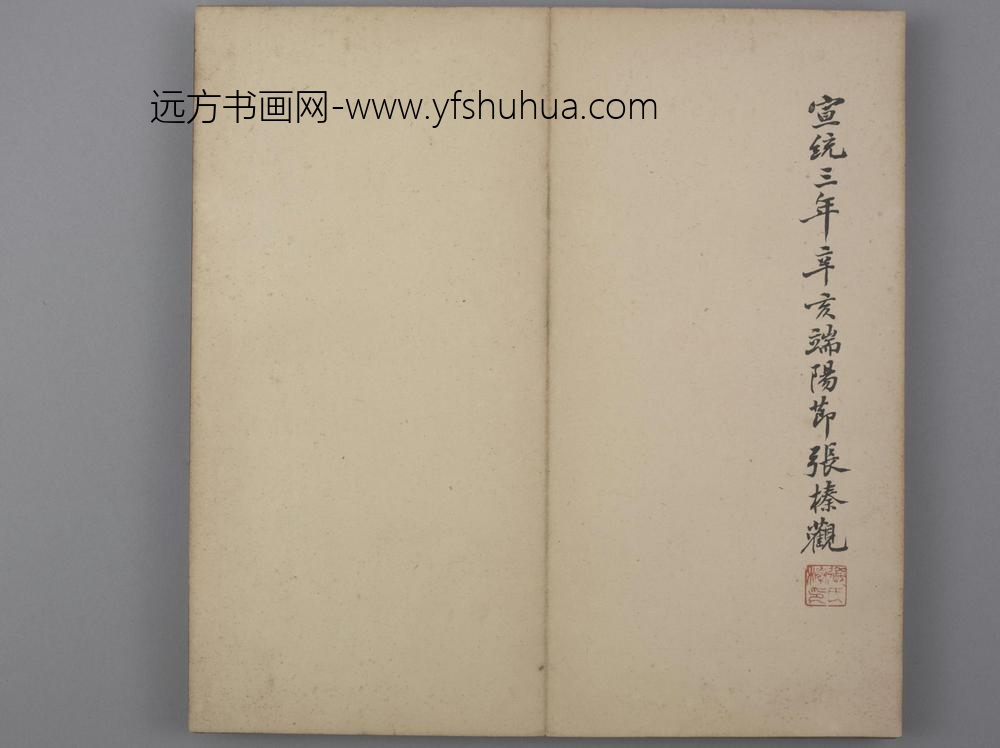 远方书画网-www.yfshuhua.com
宣統三年辛亥端陽節張榛觀